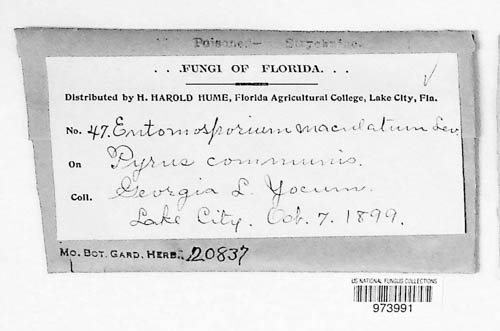 Poisoned— Strychnine.
. . .FUNGI OF FLORIDA. . .
Distributed by H. HAROLD HUME, Florida Agricultural College, Lake City, Fla.
No. 47. Entomosporium maculatum Lev.
On Pyrus communis.
Coll. Georgia L. Yocum.
Lake City. Oct. 7. 1899.
MO. BOT. GARD. HERB. 20837
US NATIONAL FUNGUS COLLECTIONS
973991